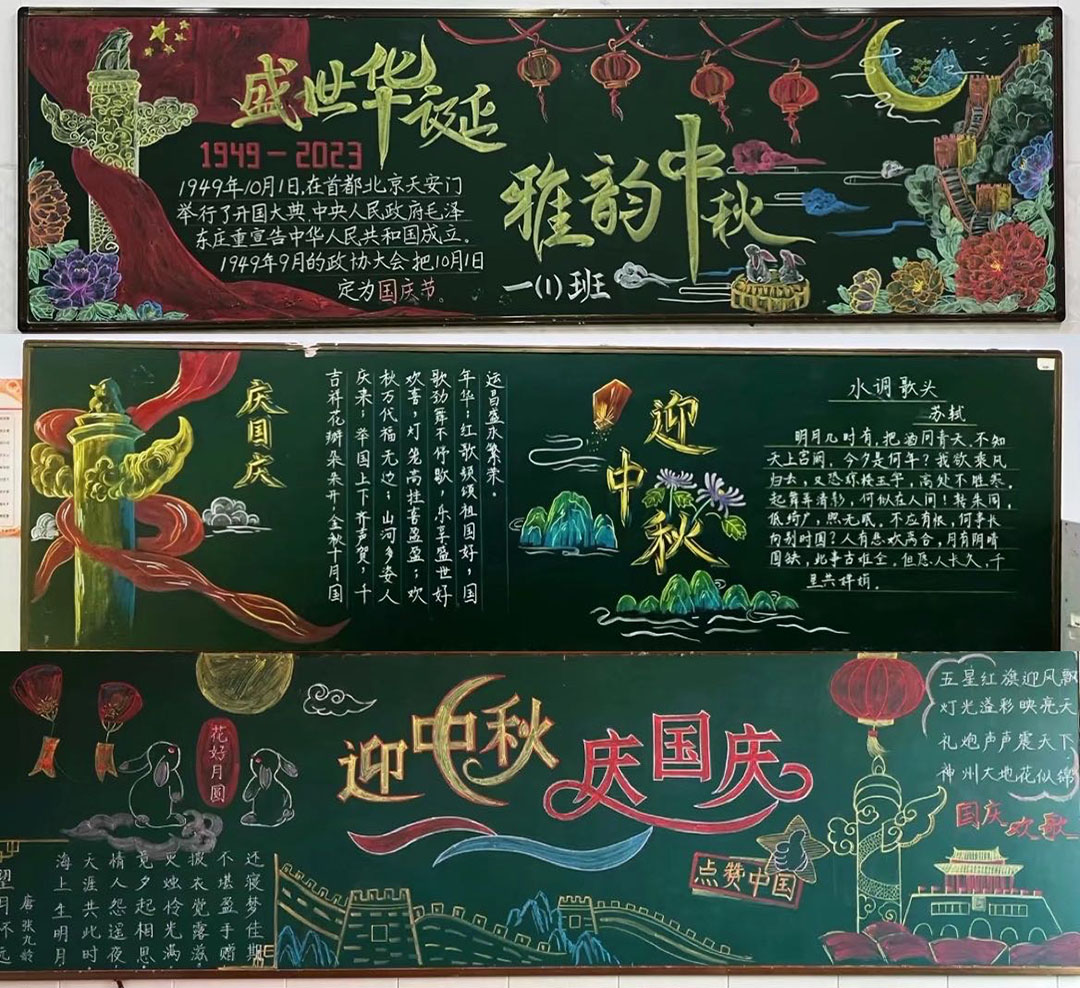 盛世华诞
1949-2023
1949年10月1日,在首都北京天安门
举行了开国大典,中央人民政府毛泽
东庄重宣告中华人民共和国成立。
1949年9月的政协大会把10月1日
定为国庆节。
雅韵中秋
一(1)班
庆国庆
吉祥花瓣朵朵开,金秋十月国
庆来;举国上下齐声贺,千
秋万代福无边;山河多姿人
欢喜,灯笼高挂喜盈盈;欢
歌劲舞不停歇,乐享盛世好
年华;红歌频颂祖国好,国
运昌盛永繁荣。
迎中秋
水调歌头
苏轼
明月几时有,把酒问青天,不知
天上宫阙,今夕是何年?我欲乘风
归去,又恐琼楼玉宇,高处不胜寒,
起舞弄清影,何似在人间!转朱阁,
低绮户,照无眠。不应有恨,何事长
向别时圆?人有悲欢离合,月有阴晴
圆缺,此事古难全。但愿人长久,千
里共婵娟。
花好月圆
迎中秋
庆国庆
五星红旗迎风飘
灯光溢彩映亮天
礼炮声声震天下
神州大地花似锦
国庆欢歌
点赞中国
望月怀远
唐 张九龄
海上生明月,
天涯共此时。
情人怨遥夜,
竟夕起相思。
灭烛怜光满,
披衣觉露滋。
不堪盈手赠
还寝梦佳期